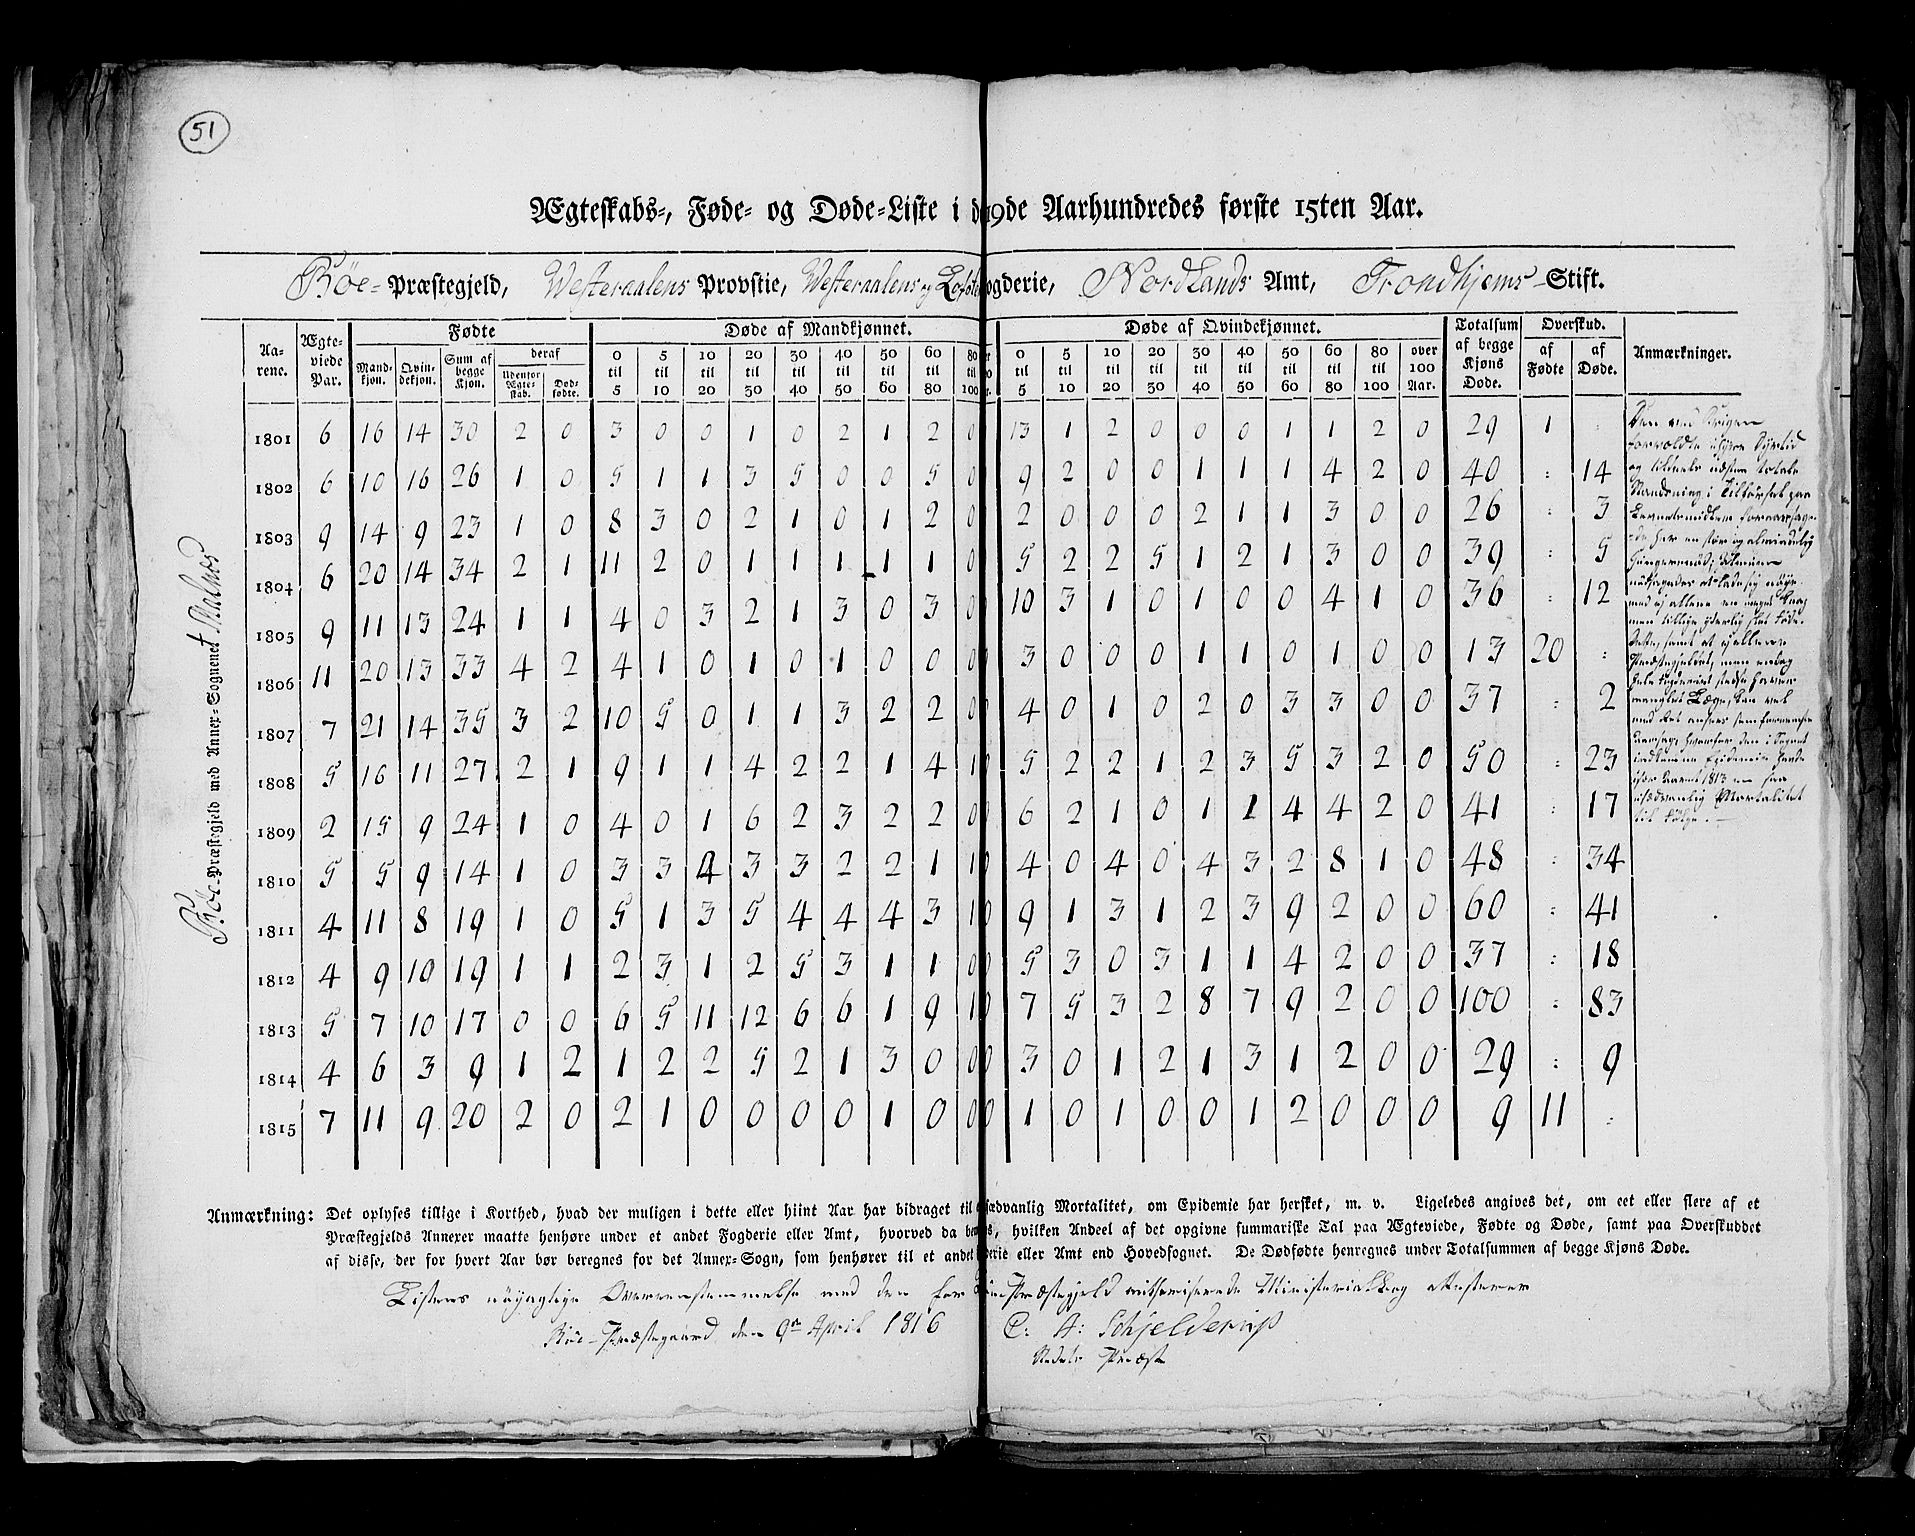 51
Ægteskabs-, Føde- og Døde-Liste i d 19de Aarhundredes første 15ten Aar.
Bøe- Præstegjeld, Westeraalens Provstie, Westeraalens og Lofot ogderie, Nordlands Amt, Trondhjems Stift.
Bøe-Præstegjeld med Annex-Sognenet Malnes
Aarene. Ægteviede Par. Fødte Døde af Mandkjønnet. Døde af Qvindekjønnet. Totalsum af begge Kjøns Døde. Overskud. Anmærkninger.
Mandkjøn. Qvindekjøn. Sum af begge Kjøn. deraf Udenfor Ægteskab. Dødfødte. af Fødte af Døde.
0 til 5 5 til 10 10 til 20 20 til 30 30 til 40 40 til 50 50 til 60 60 til 80 80 til 100 0 til 5 5 til 10 10 til 20 20 til 30 30 til 40 40 til 50 50 til 60 60 til 80 80 til 100 over 100 Aar.
1801 6 16 14 30 2 0 3 0 0 1 0 2 1 2 0 13 1 2 0 0 0 1 1 2 0 29 1 :
1802 6 10 16 26 1 0 5 1 1 3 5 0 0 5 0 9 2 0 0 1 1 1 4 2 0 40 : 14
1803 9 14 9 23 1 0 8 3 0 2 1 0 1 2 0 2 0 0 0 2 1 1 3 0 0 26 : 3
1804 6 20 14 34 2 1 11 2 0 1 1 1 1 1 0 5 2 2 5 1 2 1 3 0 0 39 : 5
1805 9 11 13 24 1 1 4 0 3 2 1 3 0 3 0 10 3 1 0 1 0 0 4 1 0 36 : 12
1806 11 20 13 33 4 2 4 1 0 1 0 1 0 0 0 0 3 0 0 0 1 1 0 1 0 0 13 20 :
1807 7 21 14 35 3 2 10 5 0 1 1 3 2 2 0 0 4 0 1 0 2 0 3 3 0 0 37 : 2
1808 5 16 11 27 2 1 9 1 1 4 2 2 1 4 1 0 5 2 2 1 2 3 5 3 2 0 50 : 23
1809 2 15 9 24 1 0 4 0 1 6 2 3 2 2 0 0 6 2 1 0 1 1 4 4 2 0 41 : 17
1810 5 5 9 14 1 0 3 3 4 3 3 2 2 1 1 0 4 0 4 0 4 3 2 8 1 0 48 : 34
1811 4 11 8 19 1 0 5 1 3 5 4 4 4 3 1 0 9 1 3 1 2 3 9 2 0 0 60 : 41
1812 4 9 10 19 1 1 2 3 1 2 5 3 1 1 0 0 5 3 0 3 1 1 4 2 0 0 37 : 18
1813 5 7 10 17 0 0 6 5 11 12 6 6 1 9 1 0 7 5 3 2 8 7 9 2 0 0 100 : 83
1814 4 6 3 9 1 2 1 2 2 5 2 1 3 0 0 0 3 0 1 2 1 3 1 2 0 0 29 : 9
1815 7 11 9 20 2 0 2 1 0 0 0 0 1 0 0 0 1 0 1 0 0 1 2 0 0 0 9 11 :
Den ved Krigen
forvoldte Dyrtid
og næsten totale
Standsning i Tilførsel paa
Levnetsmidlene
de her en stor og almindelig
Hungersnød;
men tillige
samt at
Præstegjeldet, men endog
hele Fogderiet
manglet Læge, kan vel
med
Epidemie
Aaret 1813 en saa
usædvanlig Mortalitet
til Følge.
Anmærkning: Det oplyses tillige i Korthed, hvad der muligen i dette eller hiint Aar har bidraget til sædvanlig Mortalitet, om Epidemie har hersket, m. v. Ligeledes angives det, om eet eller flere af et
Præstegjelds Annexer maatte henhøre under et andet Fogderie eller Amt, hvorved da be s, hvilken Andeel af det opgivne summariske Tal paa Ægteviede, Fødte og Døde, samt paa Overskuddet
af disse, der for hvert Aar bør beregnes for det Annex-Sogn, som henhører til et andet derie eller Amt end Hovedsognet. De Dødfødte henregnes under Totalsummen af begge Kjøns Døde.
Listens nøyagtige Overeenstemmelse med den for Præstegjeld authoriserede Ministerialbog attesterer
Bøe-Præstegaard den 9de April 1816 C: A: Schjelderup
Præst